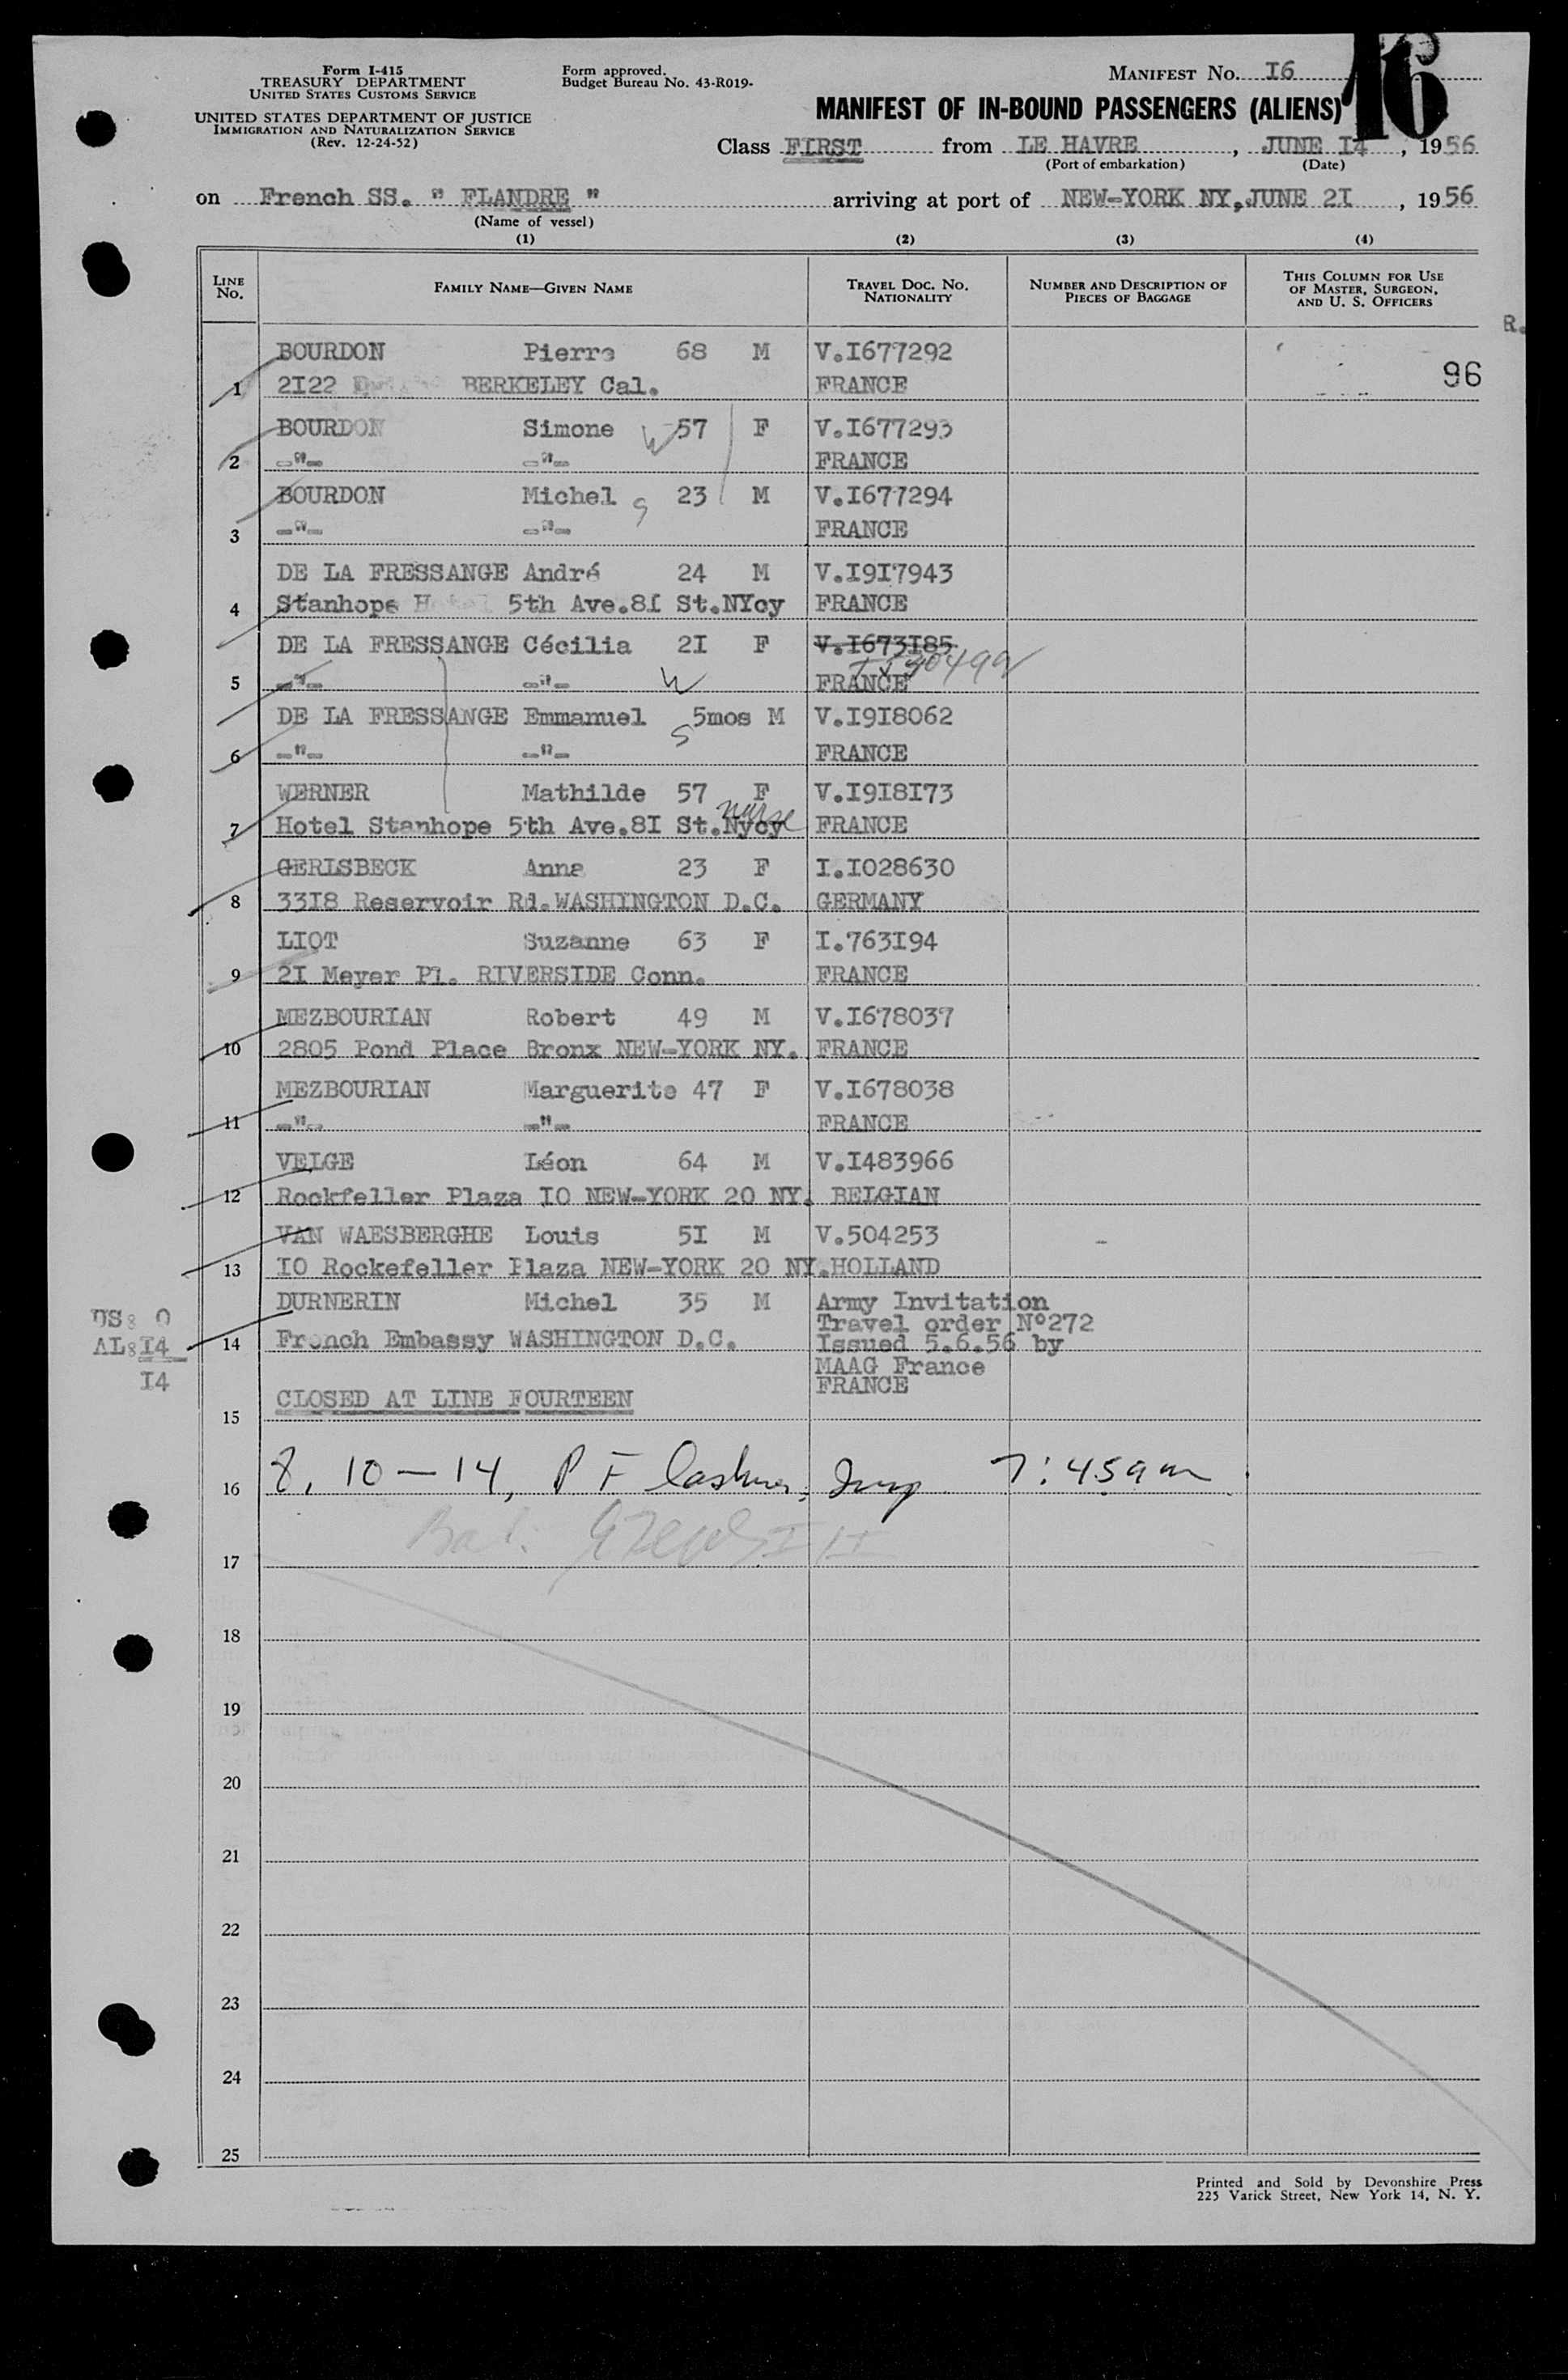 Form I-415
TREASURY DEPARTMENT
UNITED STATES CUSTOMS SERVICE
UNITED STATES DEPARTMENT OF JUSTICE
IMMIGRATION AND NATURALIZATION SERVICE
(Rev. 12-24-52)
Form approved.
Budget Bureau No. 43-R019-
MANIFEST No. I6
16
MANIFEST OF IN-BOUND PASSENGERS (ALIENS)
Class FIRST from LE HAVRE, JUNE I4, 1956
(Port of embarkation) (Date)
on French SS. " FLANDRE " arriving at port of NEW-YORK NY, JUNE 2I, 1956
(Name of vessel)
(1) (2) (3) (4)
LINE No. FAMILY NAME—GIVEN NAME TRAVEL DOC. No. NATIONALITY NUMBER AND DESCRIPTION OF PIECES OF BAGGAGE THIS COLUMN FOR USE OF MASTER, SURGEON, AND U. S. OFFICERS
R.
BOURDON Pierre 68 M V.I677292
96
1 2I22 BERKELEY Cal. FRANCE
BOURDON Simone W 57 F V.I677293
2 -"- -"- FRANCE
BOURDON Michel S 23 M V.I677294
3 -"- -"- FRANCE
DE LA FRESSANGE André 24 M V.I9I7943
4 Stanhope Hotel 5th Ave.8I St.NYcy FRANCE
DE LA FRESSANGE Cécilia 2I F V.I673I85
5 -"- -"- W FRANCE
DE LA FRESSANGE Emmanuel S 5mos M V.I9I8062
6 -"- -"- FRANCE
WERNER Mathilde 57 F V.I9I8I73
nurse
7 Hotel Stanhope 5th Ave.8I St.Nycy FRANCE
GERISBECK Anna 23 F I.I028630
8 33I8 Reservoir Rd.WASHINGTON D.C. GERMANY
LIOT Suzanne 63 F I.763I94
9 2I Meyer Pl. RIVERSIDE Conn. FRANCE
MEZBOURIAN Robert 49 M V.I678037
10 2805 Pond Place Bronx NEW-YORK NY. FRANCE
MEZBOURIAN Marguerite 47 F V.I678038
11 -"- -"- FRANCE
VELGE Léon 64 M V.I483966
12 Rockfeller Plaza IO NEW-YORK 20 NY. BELGIAN
VAN WAESBERGHE Louis 5I M V.504253
13 IO Rockefeller Plaza NEW-YORK 20 NY.HOLLAND
DURNERIN Michel 35 M Army Invitation
Travel order N°272
14 French Embassy WASHINGTON D.C. Issued 5.6.56 by
MAAG France
FRANCE
US: 0
AL: I4
I4
15 CLOSED AT LINE FOURTEEN
16 8, 10—14, P F Insp 7:45 am
17
18
19
20
21
22
23
24
25
Printed and Sold by Devonshire Press
225 Varick Street, New York 14, N. Y.